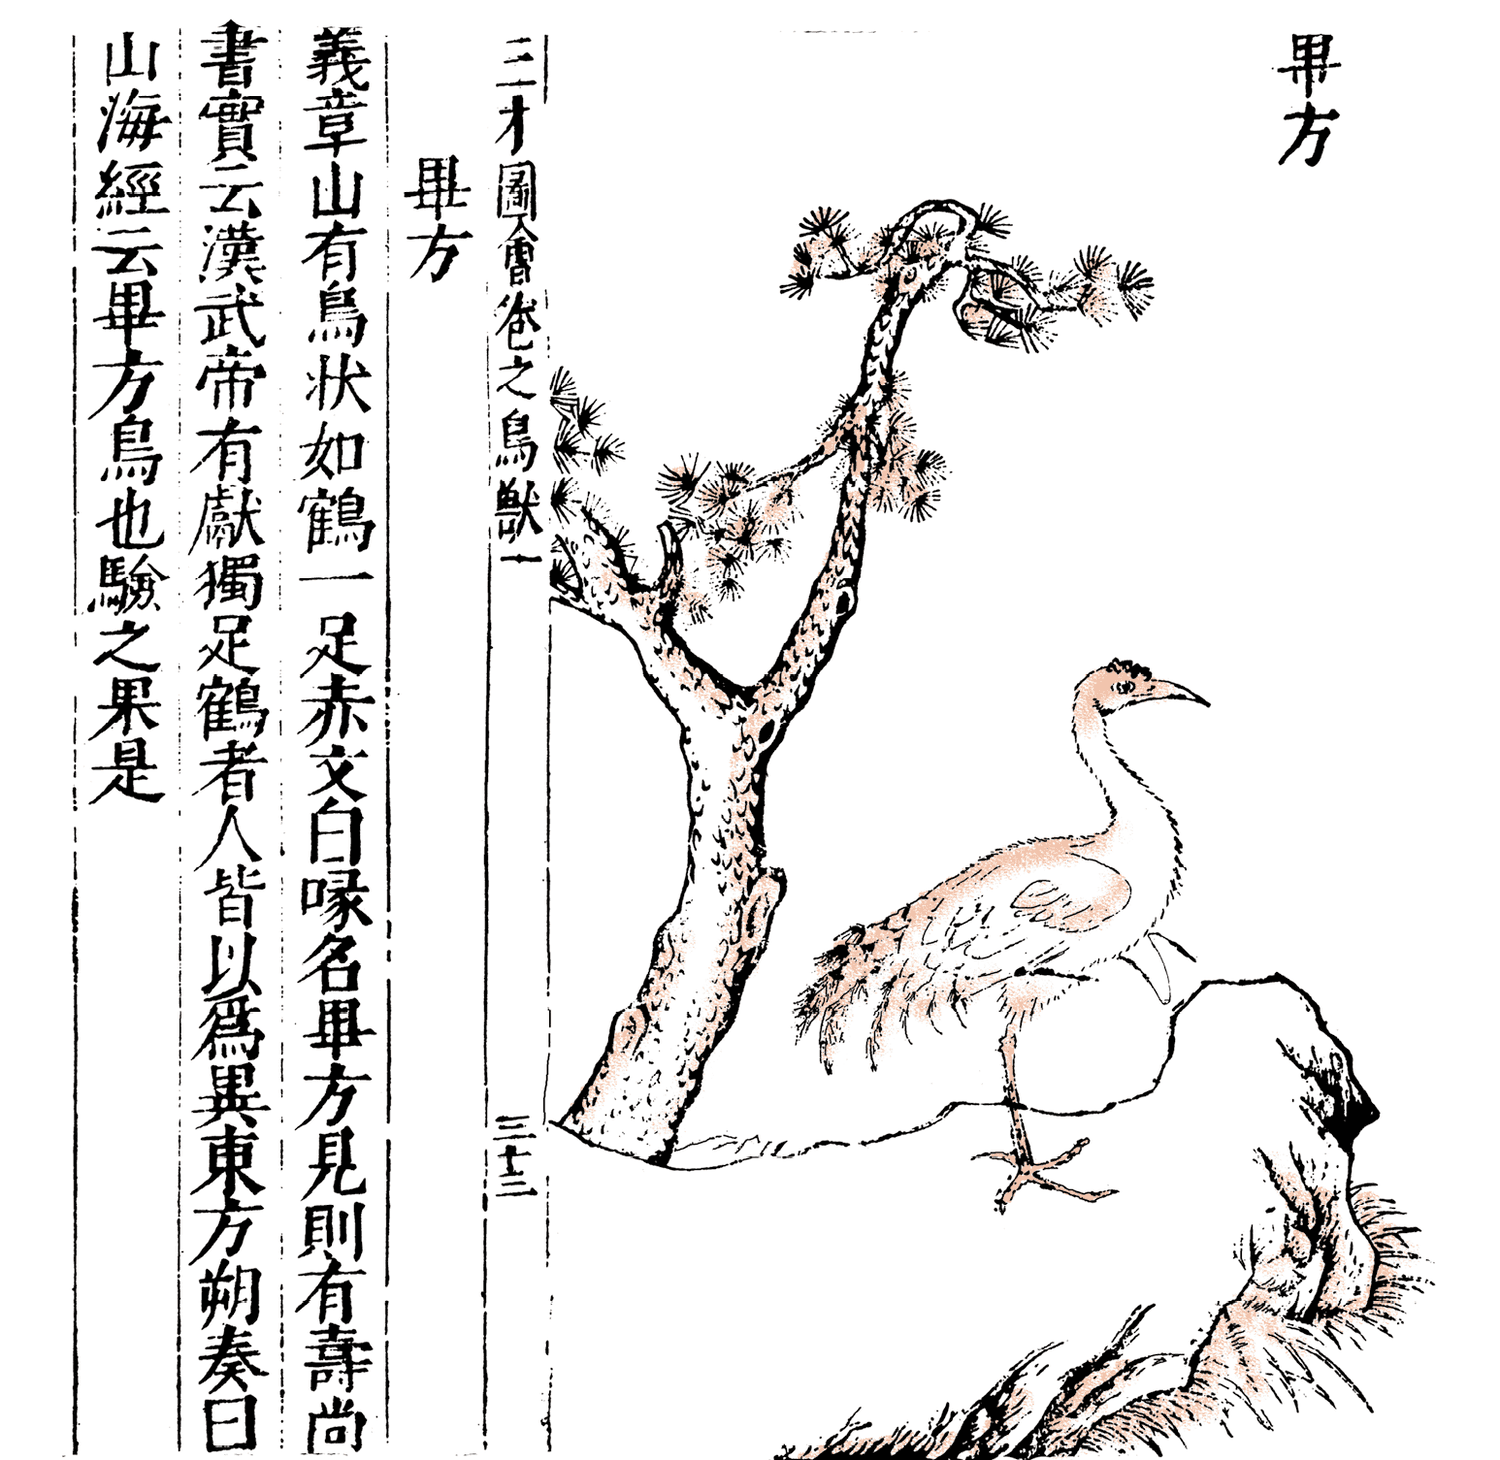 畢方
三才圖會卷之鳥獸一
三十三
畢方
義章山有鳥狀如鶴一足赤文白喙名畢方見則有壽尚
書實云漢武帝有獻獨足鶴者人皆以爲異東方朔奏曰
山海經云畢方鳥也驗之果是